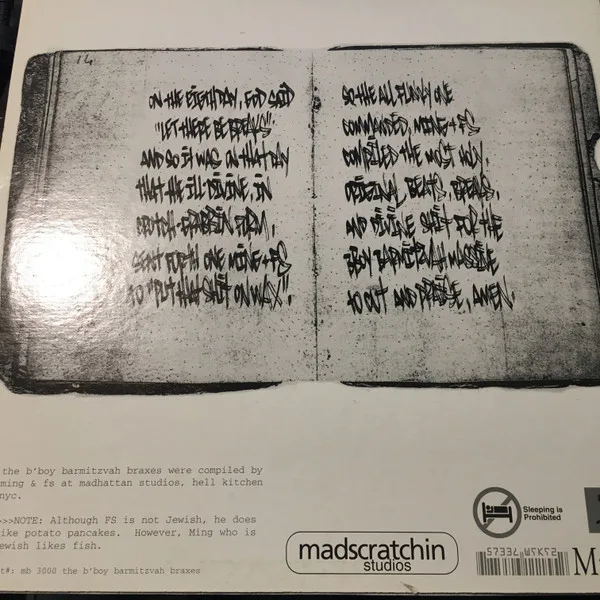 14
ON THE EIGTH DAY, GOD SAID
"LET THERE BE BREAKS".
AND SO IT WAS ON THAT DAY
THAT THE ILL DIVINE, IN
CROTCH-GRABBIN FORM,
SENT FORTH ONE MING + FS
TO "PUT THAT SHIT ON WAX".
SO THE ALL FUNKY ONE
COMMANDED, MING + FS
COMPILED THE MOST HOLY,
ORIGINAL BEATS, BREAKS,
AND DIVINE SHIT FOR THE
BBOY BARMITZVAH MASSIVE
TO CUT AND PRAISE, AMEN.
the b'boy barmitzvah braxes were compiled by
ming & fs at madhattan studios, hell kitchen
nyc.
>>>NOTE: Although FS is not Jewish, he does
like potato pancakes. However, Ming who is
ewish likes fish.
t#: mb 3000 the b'boy barmitzvah braxes
madscratchin
studios
Sleeping is
Prohibited
M